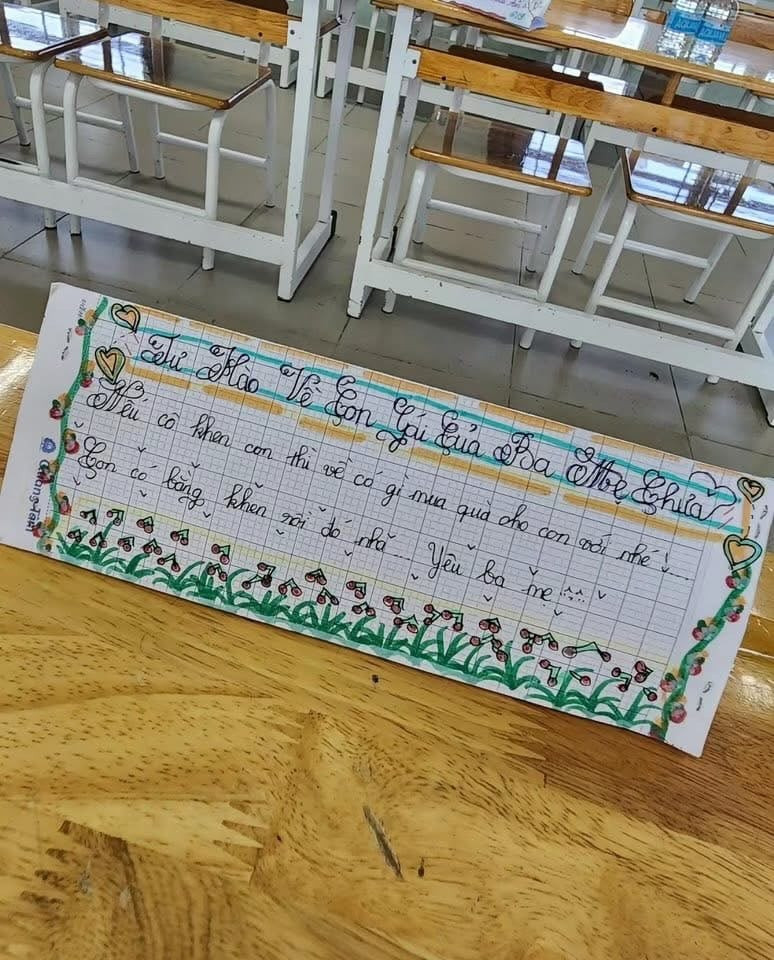 Tự Hào Về Con Gái Của Ba Mẹ Chưa
Nếu cô khen con thì về có gì mua quà cho con với nhé!...
Con có bằng khen rồi đó nha... Yêu ba mẹ :::